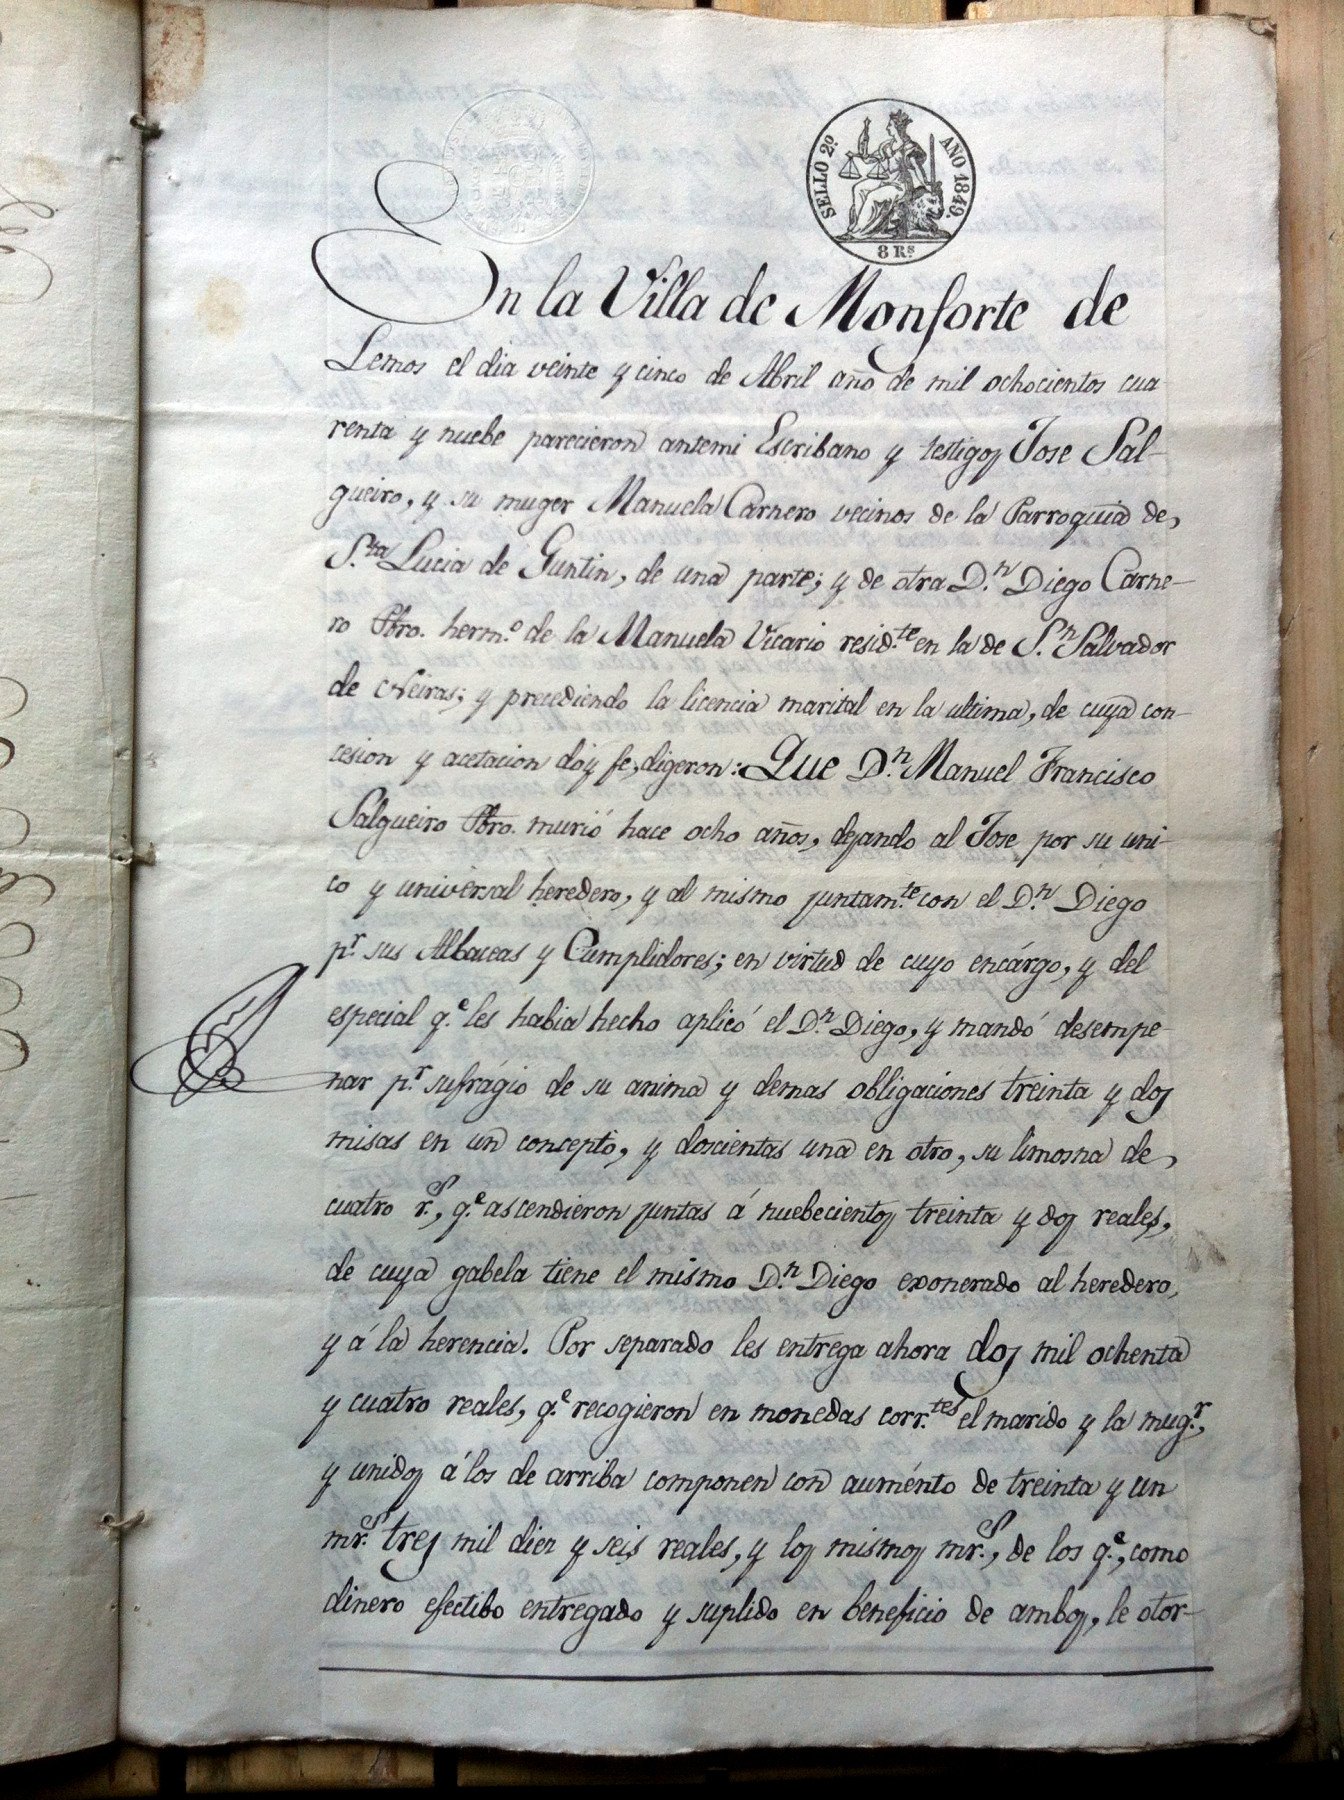 SELLO 2º AÑO 1849.
8 Rs
En la Villa de Monforte de
Lemos el dia veinte y cinco de Abril año de mil ochocientos cua
renta y nuebe parecieron antemi Escribano y testigos Jose Sal-
gueiro, y su muger Manuela Carnero vecinos de la Parroquia de
S.ta Lucia de Guntin, de una parte; y de otra D.n Diego Carne-
ro Pbro. herm.o de la Manuela Vicario resid.te en la de S.n Salvador
de Neiras; y precediendo la licencia marital en la ultima, de cuya con-
cesion y acetacion doy fe, digeron: Que D.n Manuel Francisco
Salgueiro Pbro. murió hace ocho años, dejando al Jose por su uni-
co y universal heredero, y al mismo juntam.te con el D.n Diego
p.r sus Albaceas y Cumplidores; en virtud de cuyo encárgo, y del
especial q.e les habia hecho aplicó el D.n Diego, y mandó desempe-
nar p.r sufrágio de su anima y demas obligaciones treinta y dos
misas en un concepto, y doscientas una en otro, su limosna de
cuatro r.s, q.e ascendieron juntas á nuebecientos treinta y dos reales,
de cuya gabela tiene el mismo D.n Diego exonerado al heredero,
y á la herencia. Por separado les entrega ahora dos mil ochenta
y cuatro reales, q.e recogieron en monedas corr.tes el marido y la mug.r,
y unidos á los de arriba componen con auménto de treinta y un
mr.s tres mil diez y seis reales, y los mismos mr.s, de los q.e, como
dinero efectibo entregado y suplido en beneficio de ambos, le otor-